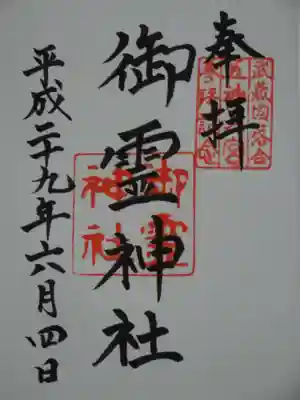 奉拝
武蔵国落合
御霊神社
御霊
神社
平成二十九年六月四日